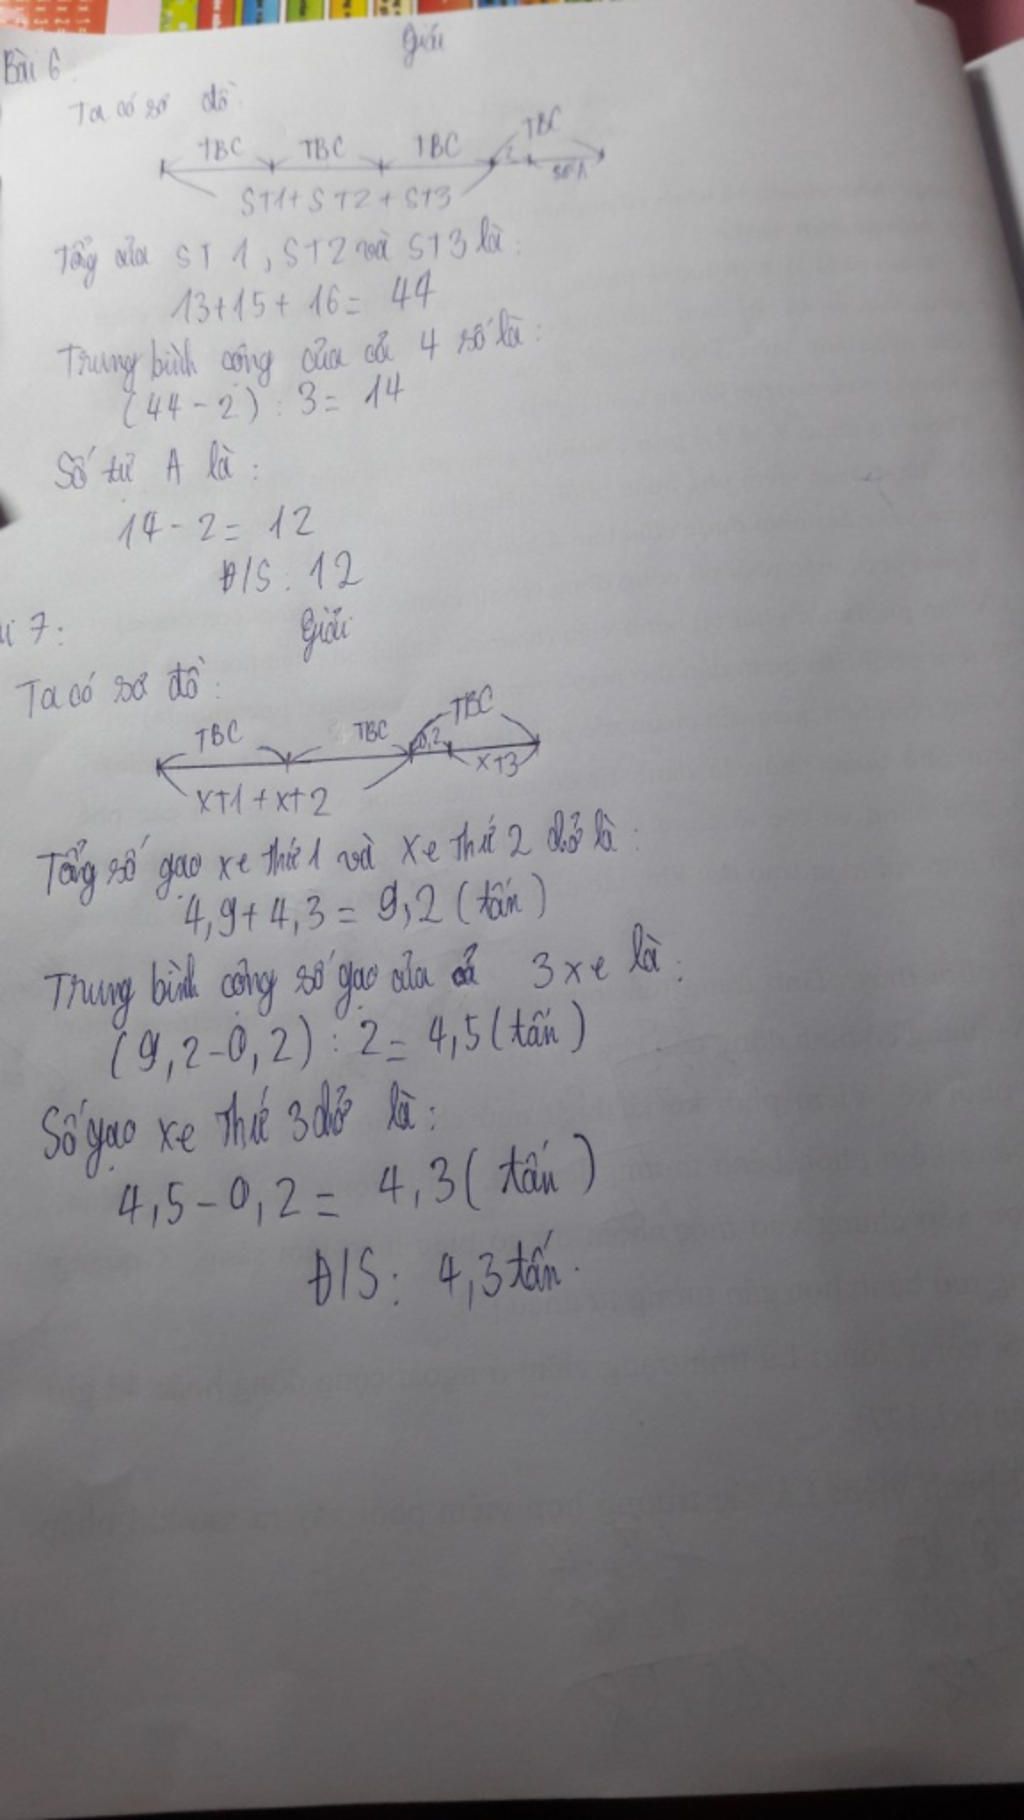 Bài 6.
Giải
Ta có sơ đồ:
TBC TBC TBC TBC
2
số A
ST1+ST2+ST3
Tổng của ST 1, ST2 và ST3 là:
13+15+16= 44
Trung bình cộng của cả 4 số là:
(44-2) : 3= 14
Số tự A là:
14-2= 12
Đ/S: 12
i 7:
Giải
Ta có sơ đồ:
TBC TBC TBC
0,2
x+3
x+1+x+2
Tổng số gạo xe thứ 1 và xe thứ 2 chở là:
4,9+4,3= 9,2 (tấn)
Trung bình cộng số gạo của cả 3 xe là:
(9,2-0,2) : 2= 4,5 (tấn)
Số gạo xe thứ 3 chở là:
4,5-0,2= 4,3( tấn )
Đ/S: 4,3 tấn.